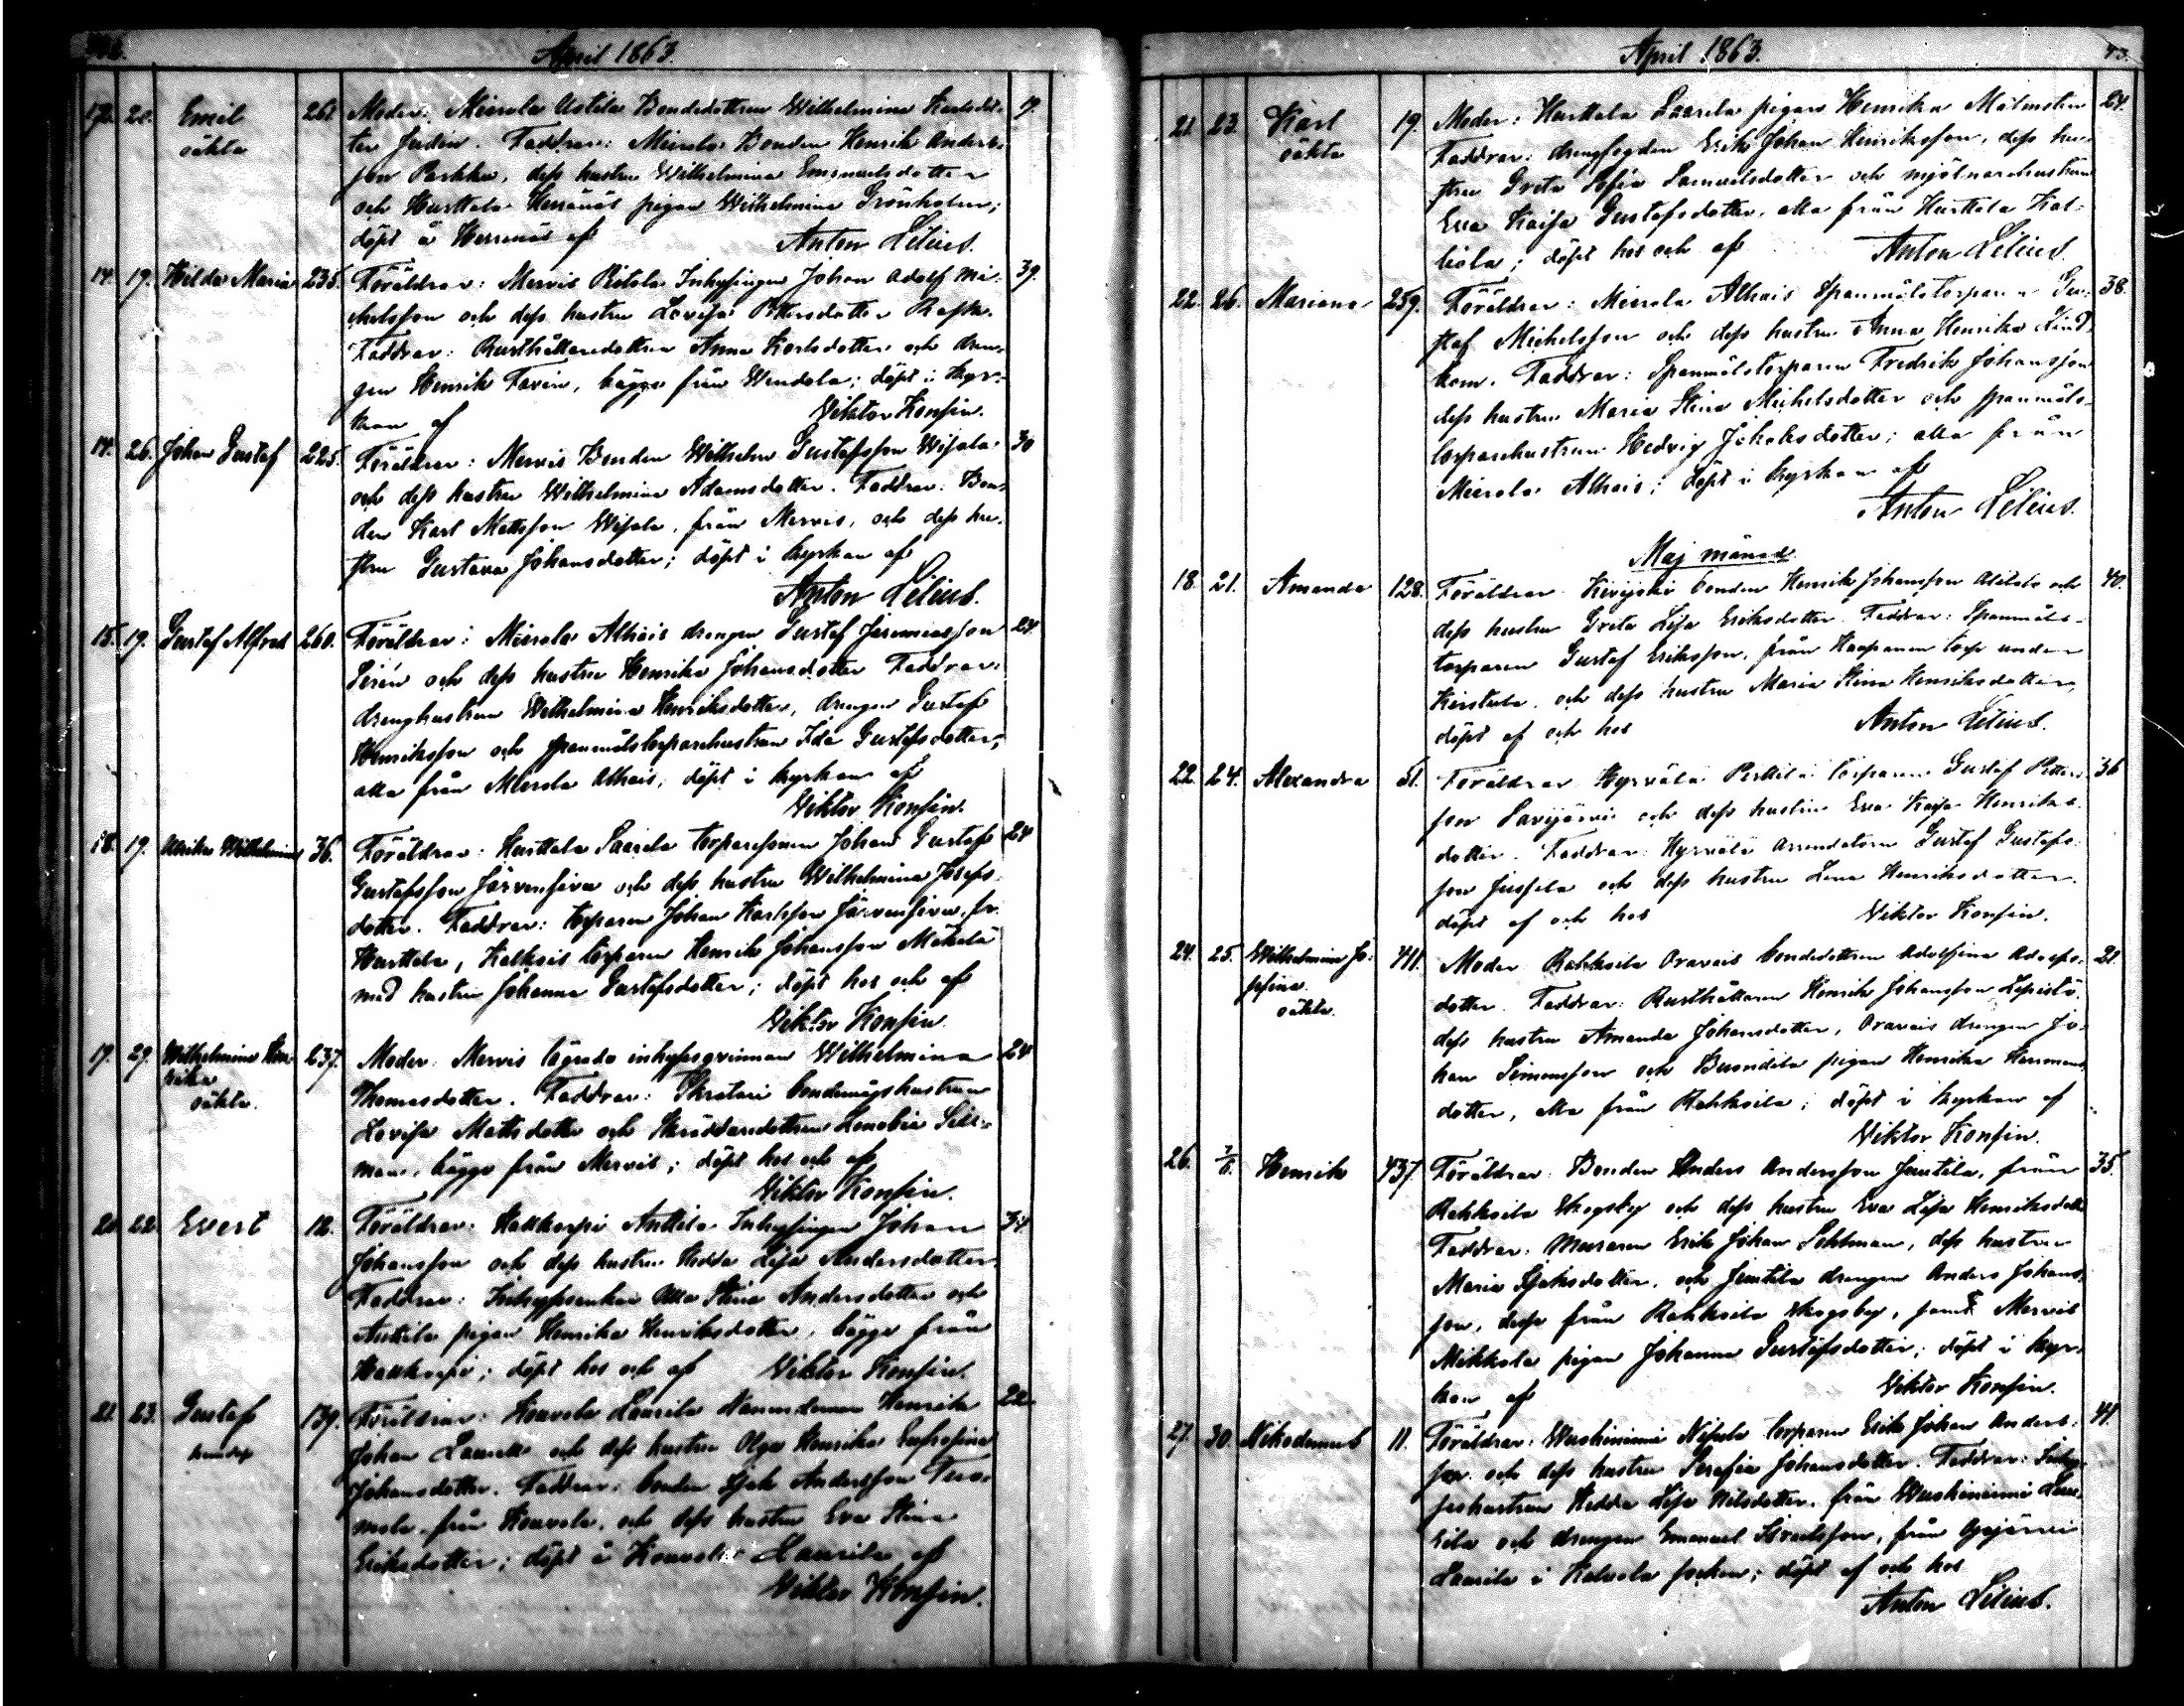 April 1863.
20. Emil 261. Moder: Mierola Uotila Bondedottren Wilhelmina 19.
oäkta Faddrar: Mierola Bonden Henrik Anders-
son, dess hustru Wilhelmina Emanuelsdotter
och Hurttala Herrnäs pigan Wilhelmina Grönholm;
döpt å Herrnäs af Anton Lilius.
14. 19. Hilda Maria 235. Föräldrar: Mervis Inhysingen Johan Adolf Mi- 39.
chelsson och dess hustru Lovisa Pettersdotter
Faddrar: Rusthållaredottren Anna Karlsdotter och dren-
gen Henrik, bägge från Wendola; döpt i kyr-
kan af Viktor Konsin.
14. 26. Johan Gustaf 225. Föräldrar: Mervis Bonden Wilhelm Gustafsson Wisala 30
och dess hustru Wilhelmina Adamsdotter. Faddrar: Bon-
den Karl Mattsson Wisala, från Mervis, och dess hu-
stru Gustava Johansdotter; döpt i kyrkan af
Anton Lilius.
15. 19. Gustaf Alfred 260. Föräldrar: Mierola Alhais drengen Gustaf Jeremiasson 24.
Sirén och dess hustru Henrika Johansdotter Faddrar:
drenghustrun Wilhelmina Henriksdotter, drengen Gustaf
Henriksson och spanmålstorparehustrun Ida Gustafsdotter,
alla från Mierola Alhais; döpt i kyrkan af
Viktor Konsin.
18. 19. Ulrika Wilhelmina 36. Föräldrar: Hurttala Saarela torparesonen Johan Gustaf 24
Gustafsson Järvensivu och dess hustru Wilhelmina Josefs-
dotter. Faddrar: torparen Johan Karlsson Järvensivu, fr.
Hurttala, torparen Henrik Johansson Mäkelä
med hustru Johanna Gustafsdotter; döpt hos och af
Viktor Konsin.
19. 29. Wilhelmina Hen- 237. Moder: Mervis inhysesqvinnan Wilhelmina 24
rika Thomasdotter. Faddrar: bondemågshustrun
oäkta. Lovisa Mattsdotter och Skräddaredottren Zenobia
bägge från Mervis; döpt hos och af
Viktor Konsin.
22. Evert 12. Föräldrar: Hattkorpi Anttila Inhysingen Johan 34
Johansson och dess hustru Hedda Lisa Andersdotter.
Faddrar: Inhysesenkan Ulla Stina Andersdotter och
Anttila pigan Henrika Henriksdotter, bägge från
Hattkorpi; döpt hos och af Viktor Konsin.
21. 23. Gustaf 139. Föräldrar: Kouvola Laurila Nämndeman Henrik 22
Johan och dess hustru Olga Henrika Eufrosina
Johansdotter. Faddrar: bonden Isak Andersson
från Kouvola, och dess hustru Eva Stina
Eriksdotter; döpt å Kouvola Laurila af
Viktor Konsin.
April 1863. 43.
21. 23. Karl 19. Moder: Hurttala Saarela pigan Henrika Malmsten 24.
oäkta Faddrar: drengfogden Erik Johan Henriksson, dess hu-
stru Greta Sofia Samuelsdotter och mjölnarehustrun
Eva Kaisa Gustafsdotter, alla från Hurttala
döpt hos och af Anton Lilius.
22. 26. Mariana 259. Föräldrar: Mierola Alhais Spanmålstorparen Gu- 38.
staf Michelsson och dess hustru Anna Henrika
Faddrar: Spanmålstorparen Fredrik Johansson
dess hustru Maria Stina Michelsdotter och spanmåls-
torparehustrun Hedvig Jakobsdotter; alla från
Mierola Alhais; döpt i kyrkan af
Anton Lilius.
Maj månad.
18. 21. Amanda 128. Föräldrar: bonden Henrik Johansson och 40.
dess hustru Greta Lisa Eriksdotter. Faddrar: Spanmåls-
torparen Gustaf Eriksson, från Haapanen torp under
Kirstula, och dess hustru Maria Stina Henriksdotter;
döpt af och hos Anton Lilius.
22. 24. Alexandra 51. Föräldrar: Hyrvälä Perttila torparen Gustaf Petters- 36
son Savijärvi och dess hustru Eva Kaisa Henriks-
dotter. Faddrar: Hyrvälä Arrendatorn Gustaf Gustafs-
son Jussila och dess hustru Lena Henriksdotter.
döpt af och hos Viktor Konsin.
24. 25. Wilhelmina Jo- 411. Moder: Rahkoila Oravais bondedottren Adolfina Adolfs- 21.
sefina dotter. Faddrar: Rusthållaren Henrik Johansson Lepistö
oäkta. dess hustru Amanda Johansdotter, Oravais drengen Jo-
han Simonsson och pigan Henrika Hermans-
dotter, alla från Rahkoila; döpt i kyrkan af
Viktor Konsin.
26. 7/6. Henrik 437. Föräldrar: Bonden Anders Andersson Junttila, från 35.
Rahkoila Skogsby och dess hustru Eva Lisa Henriksdotter
Faddrar: Muraren Erik Johan, dess hustru
Maria Isaksdotter, och Junttila drengen Anders Johans-
son, desse från Rahkoila Skogsby, samt Mervis
Mikkola pigan Johanna Gustafsdotter; döpt i kyr-
kan af Viktor Konsin.
27. 30. Nikodemus 11. Föräldrar: Wuohiniemi torparen Erik Johan Anders- 41.
son och dess hustru Serafia Johansdotter. Faddrar: Inhy-
seshustrun Hedda Lisa Nilsdotter, från Wuohiniemi
och drengen Emanuel Israelsson, från
Laurila i Kalvola socken; döpt af och hos
Anton Lilius.